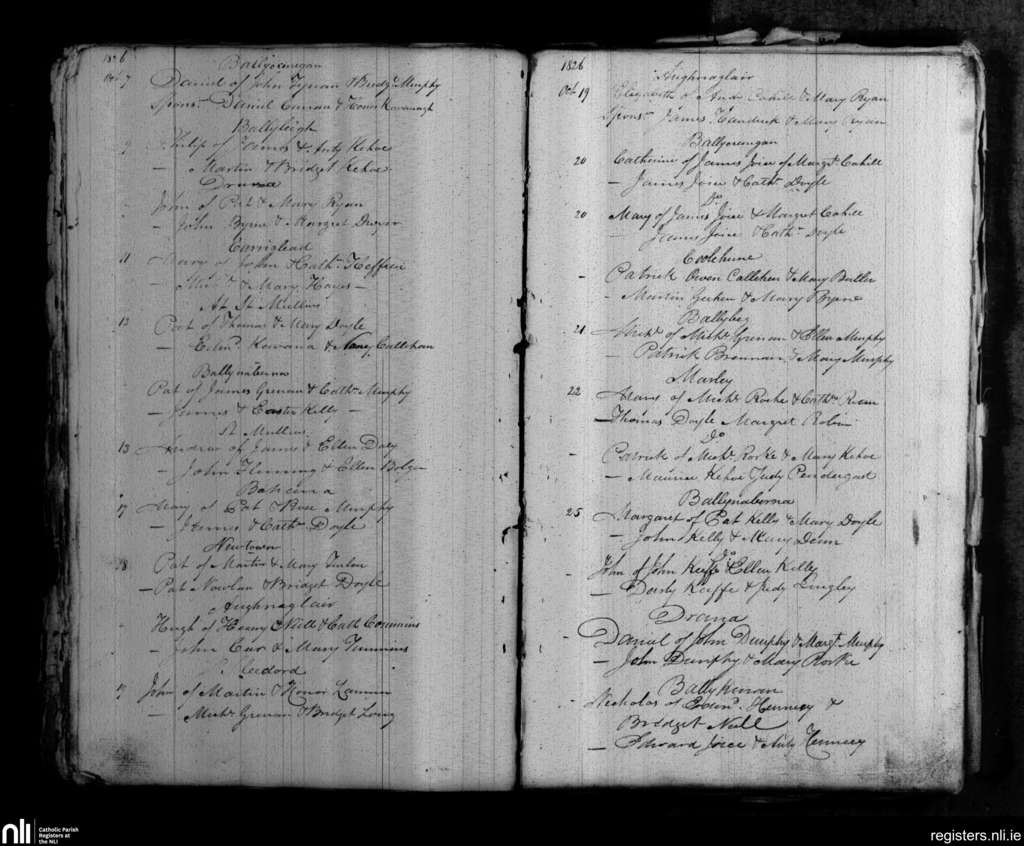 1826
Ballycrinegan
Oct 7 Daniel of John Tynan & Bridgt Murphy
Sponsr Daniel Curran & Honor Kavanagh
Ballyleigh
9 Philip of James & Anty Kehoe
— Martin & Bridget Kehoe
Drumna
- John of Pat & Mary Ryan
- John Byrne & Margret Dwyer
Carriglead
11 Mary of John & Cathn Heffrin
— Michl & Mary Hayes —
At St Mullins
12 Pat of Thomas & Mary Doyle
— Edwd. Kavana & Nancy Callihan
Ballynaberna
Pat of James Grenan & Cathn Murphy
— James & Easter Kelly —
St Mullins
13 Andrew of James & Ellen Daly
— John Fleming & Ellen Bolger
Bahcina
17 Mary of Pat & Rose Murphy
— James & Cathn Doyle
Newtown
18 Pat of Martin & Mary
— Pat Nowlan & Bridget Doyle
Aughnaglair
Hugh of Henry Neill & Cath Commins
- John Cur & Mary Timmins
19 John of Martin & Honor
— Michl Grenan & Bridget Long
1826
Aughnaglair
Oct 19 Elizabeth of Andw Cahill & Mary Ryan
Sponsr James Hendrick & Mary Ryan
Ballycrinegan
20 Catherine of James Joice of Margt. Cahill
— James Joice & Cathn Doyle
Do
20 Mary of James Joice & Margret Cahill
— James Joice Cathn Doyle
Coolehune
- Patrick Owen Callihan & Mary Butler
— Martin Gerhen & Mary Byrne
Ballybeg
21 Michl of Michl Grenan & Ellen Murphy
— Patrick Brennan & Mary Murphy
Marley
22 Mary of Michl Rorke & Cathn Ryan
— Thomas Doyle Margret
Do
- Patrick of Michl. Rorke & Mary Kehoe
— Maurice Kehoe Judy Pendergast
Ballynaberna
25 Margaret of Pat Kelly & Mary Doyle
— John Kelly & Mary Dunn
Do
- John of John Keiffe & Ellen Kelly
— Darby Keiffe & Judy Lingley
Drona
- Daniel of John Dunphy & Margt. Murphy
— John Dunphy & Mary Rorke
- Nicholas of Edwd. Hennesy &
Bridget Neill
— Edward Joice & Anty Hennesy
nli
Catholic Parish
Registers at
the NLI
registers.nli.ie